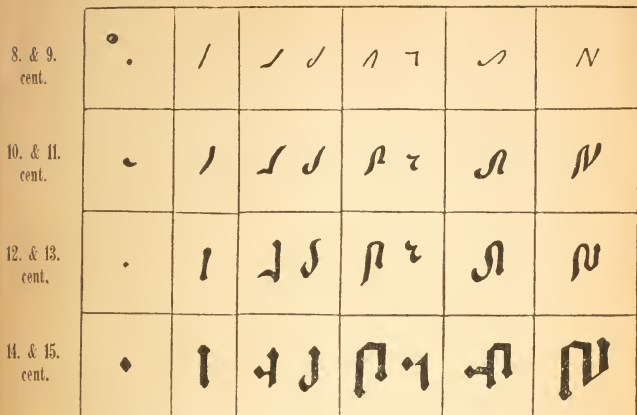 8. & 9.
cent.
10. & 11.
cent.
12. & 13.
cent.
14. & 15.
cent.